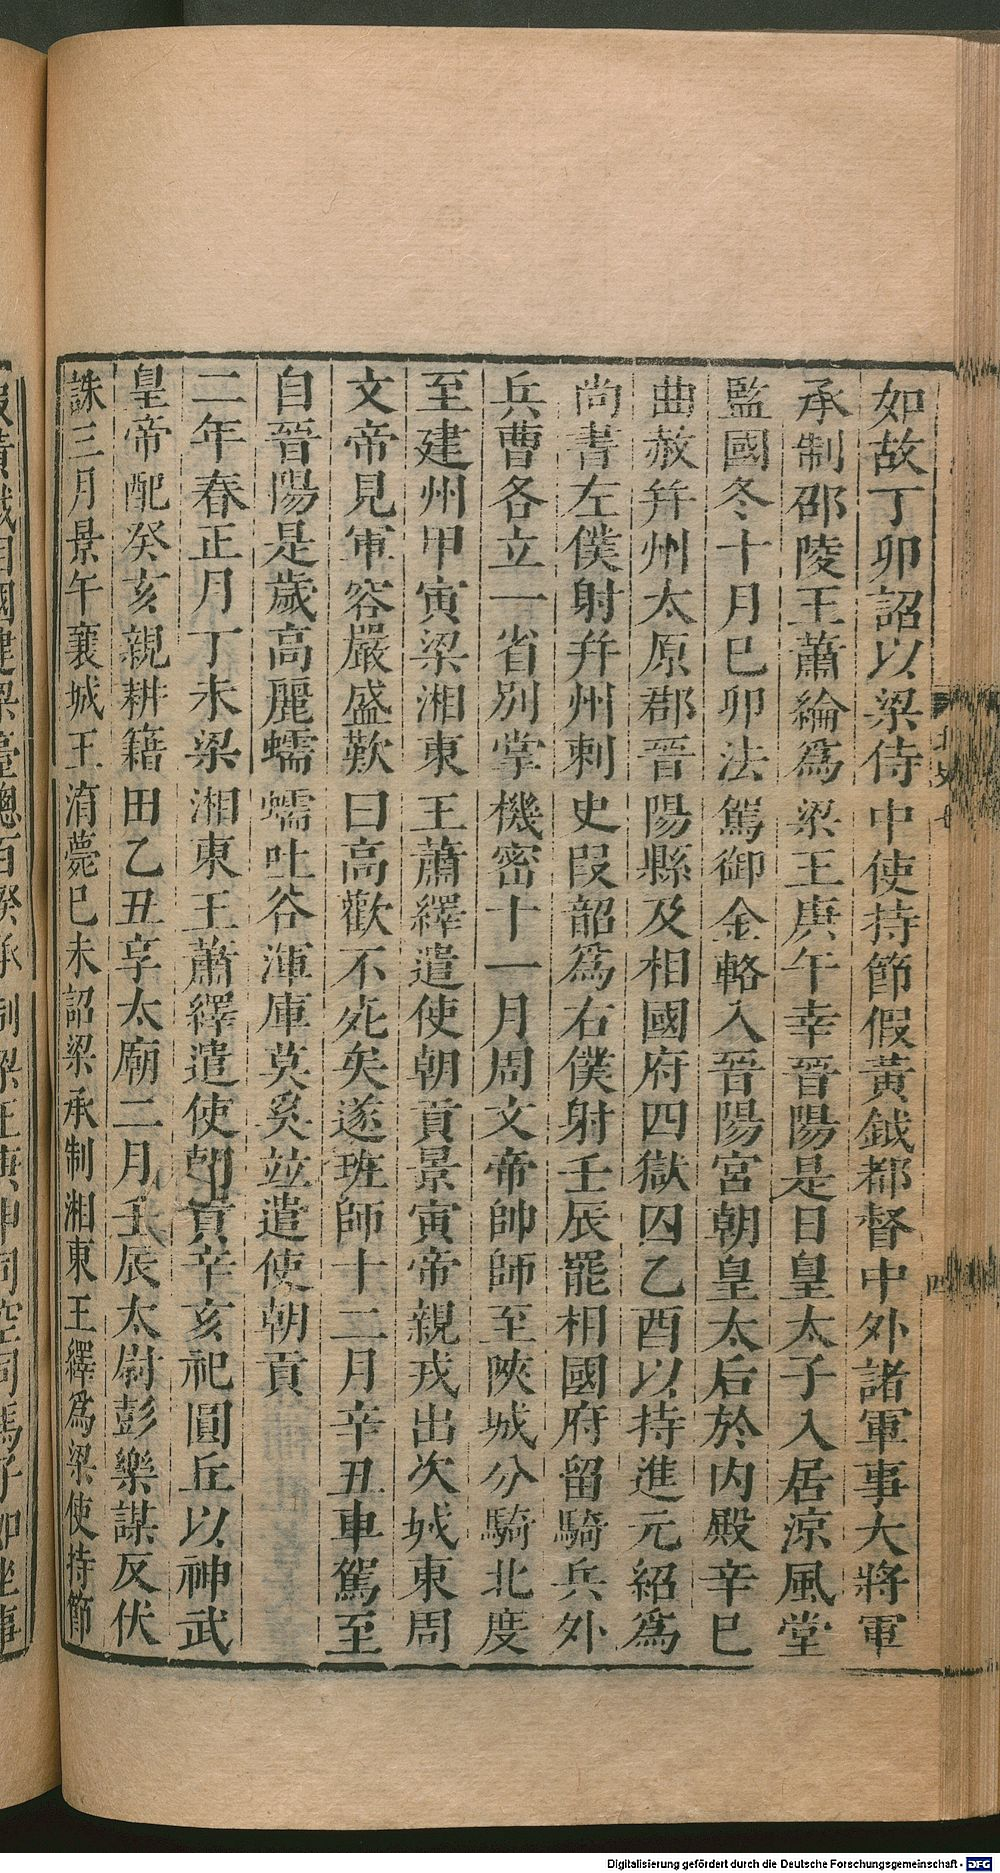 如故丁卯詔以梁侍中使持節假黃鉞都督中外諸軍事大將軍
承制邵陵王蕭綸爲梁王庚午幸晉陽是日皇太子入居涼風堂
監國冬十月巳卯法駕御金輅入晉陽宮朝皇太后於內殿辛巳
曲赦幷州太原郡晉陽縣及相國府四獄囚乙酉以持進元紹爲
尚書左僕射幷州刺史叚韶爲右僕射壬辰罷相國府留騎兵外
兵曹各立一省別掌機密十一月周文帝帥師至陝城分騎北度
至建州甲寅梁湘東王蕭繹遣使朝貢景寅帝親戎出次城東周
文帝見軍容嚴盛歎曰高歡不死矣遂班師十二月辛丑車駕至
自晉陽是歲高麗蠕蠕吐谷渾庫莫奚竝遣使朝貢
二年春正月丁未梁湘東王蕭繹遣使朝貢辛亥祀圓丘以神武
皇帝配癸亥親耕籍田乙丑享太廟二月壬辰太尉彭樂謀反伏
誅三月景午襄城王淯薨巳未詔梁承制湘東王繹爲梁使持節
四
Digitalisierung gefördert durch die Deutsche Forschungsgemeinschaft - DFG